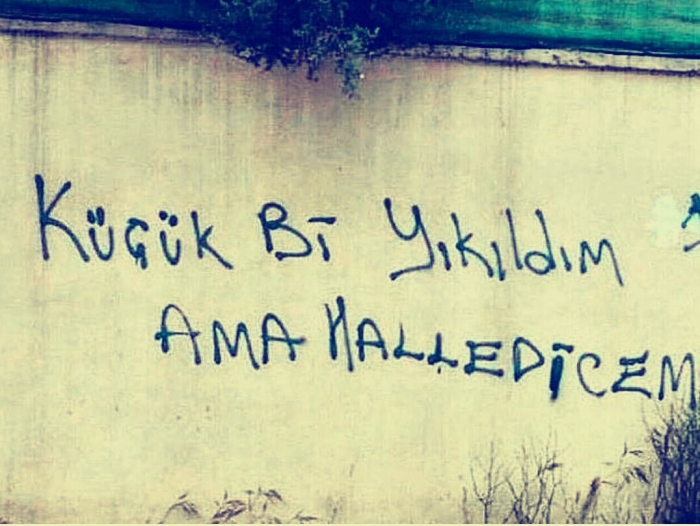 Küçük Bi Yıkıldım
AMA HALLEDİCEM